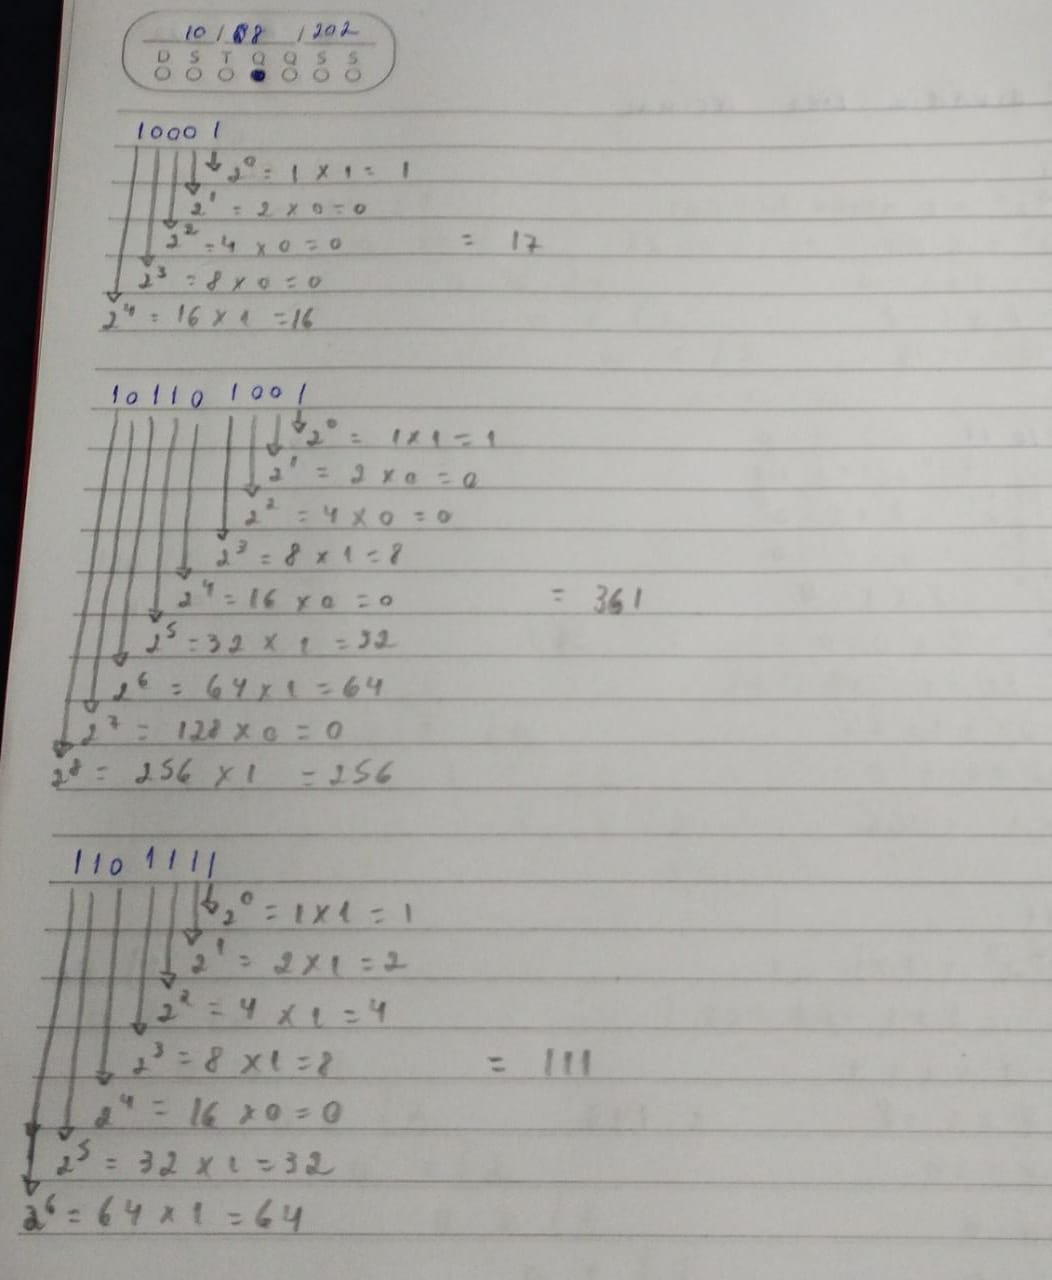 10 / 08 / 202
D S T Q Q S S
10001
2⁰ = 1 x 1 = 1
2¹ = 2 x 0 = 0
2² = 4 x 0 = 0 = 17
2³ = 8 x 0 = 0
2⁴ = 16 x 1 = 16
10110 1001
2⁰ = 1 x 1 = 1
2¹ = 2 x 0 = 0
2² = 4 x 0 = 0
2³ = 8 x 1 = 8
2⁴ = 16 x 0 = 0 = 361
2⁵ = 32 x 1 = 32
2⁶ = 64 x 1 = 64
2⁷ = 128 x 0 = 0
2⁸ = 256 x 1 = 256
110 1111
2⁰ = 1 x 1 = 1
2¹ = 2 x 1 = 2
2² = 4 x 1 = 4
2³ = 8 x 1 = 8 = 111
2⁴ = 16 x 0 = 0
2⁵ = 32 x 1 = 32
2⁶ = 64 x 1 = 64